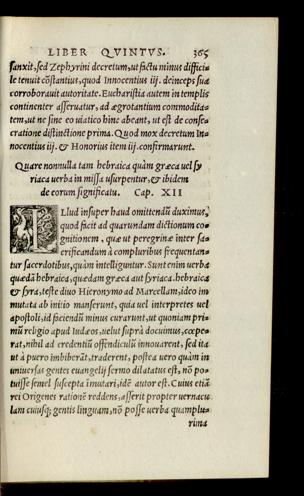 LIBER QVINTVS. 365
sanxit, sed Zephyrini decretum, ut factu minus difficile
le tenuit cōstantius, quod Innocentius iij. deinceps suæ
corroborauit autoritate. Eucharistia autem in templis
continenter asseruatur, ad ægrotantium commoditatem,
ut ne sine eo uiatico hinc abeant, ut est de conse-
cratione distinctione prima. Quod mox decretum In-
nocentius iij. & Honorius item iij. confirmarunt.
Quare nonnulla tam hebraica quàm græca uel sy
riaca uerba in missa usurpentur, & ibidem
de eorum significatu. Cap. XII
ILlud insuper haud omittendū duximus,
quod facit ad quarundam dictionum co-
gnitionem, quæ ut peregrinæ inter sa-
crificandum à compluribus frequentan-
tur sacerdotibus, quàm intelliguntur. Sunt enim uerba
quædā hebraica, quædam græca aut syriaca hebraica
& syra, teste diuo Hieronymo ad Marcellam, ideo im
mutata ab initio manserunt, quia uel interpretes uel
apostoli, id faciendū minus curarunt, ut quoniam pri-
mū religio apud Iudæos, uelut suprà docuimus, cœpe-
rat, nihil ad credentiū offendiculū innouarent, sed ita
ut à puero imbiberāt, traderent, postea uero quàm in
uniuersas gentes euangelij sermo dilatatus est, nō po-
tuisse semel suscepta īmutari, idē autor est. Cuius etiā
rei Origenes rationē reddens, asserit propter uernacu
lam cuiusq; gentis linguam, nō posse uerba quamplu-
rima